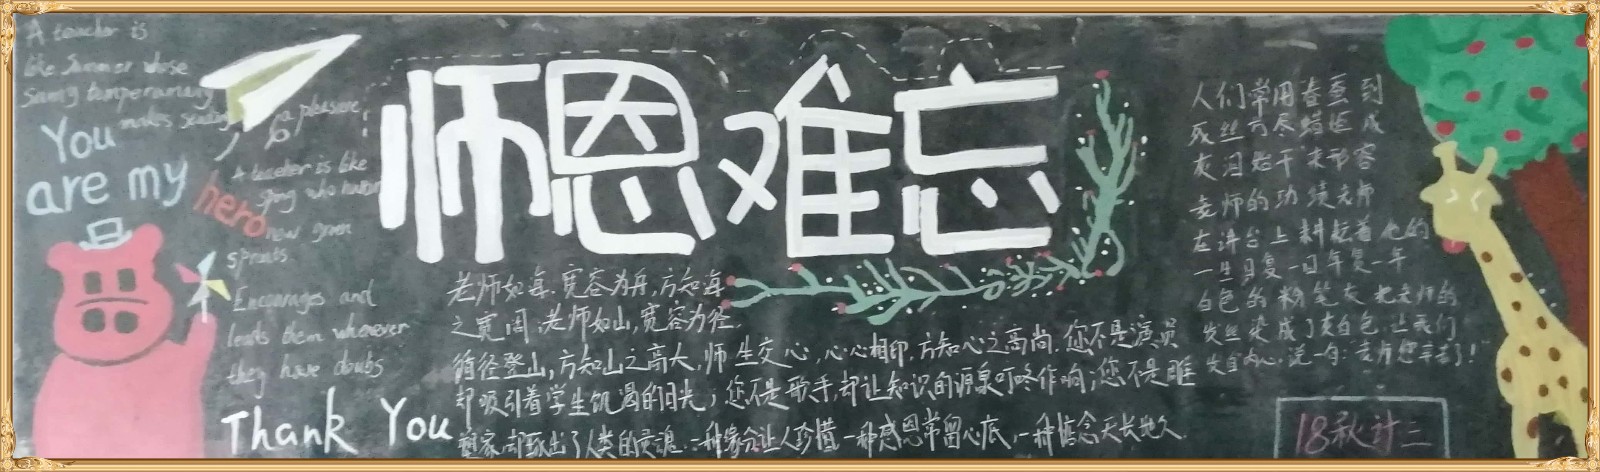 A teacher is
like Summer whose
makes
a pleasure
You
are my
hero
A teacher is like
who
new green
sprouts
Encourages and
leads them whenever
they have doubts
Thank You
师恩难忘
老师如海,宽容为舟,方知海
之宽阔;老师如山,宽容为径,
循径登山,方知山之高大,师生交心,心心相印,方知心之高尚.您不是演员
却吸引着学生饥渴的目光;您不是歌手,却让知识的源泉叮咚作响;您不是雕
塑家,却琢出了人类的灵魂.一种缘分让人珍惜一种感恩常留心底,一种信念天长地久.
人们常用春蚕到
死丝方尽蜡炬成
灰泪始干来形容
老师的功绩老师
在讲台上耕耘着他的
一生日复一日年复一年
白色的粉笔灰把老师的
发丝染成了灰白色,让我们
发自内心说一句:“老师您辛苦了!”
18秋计三